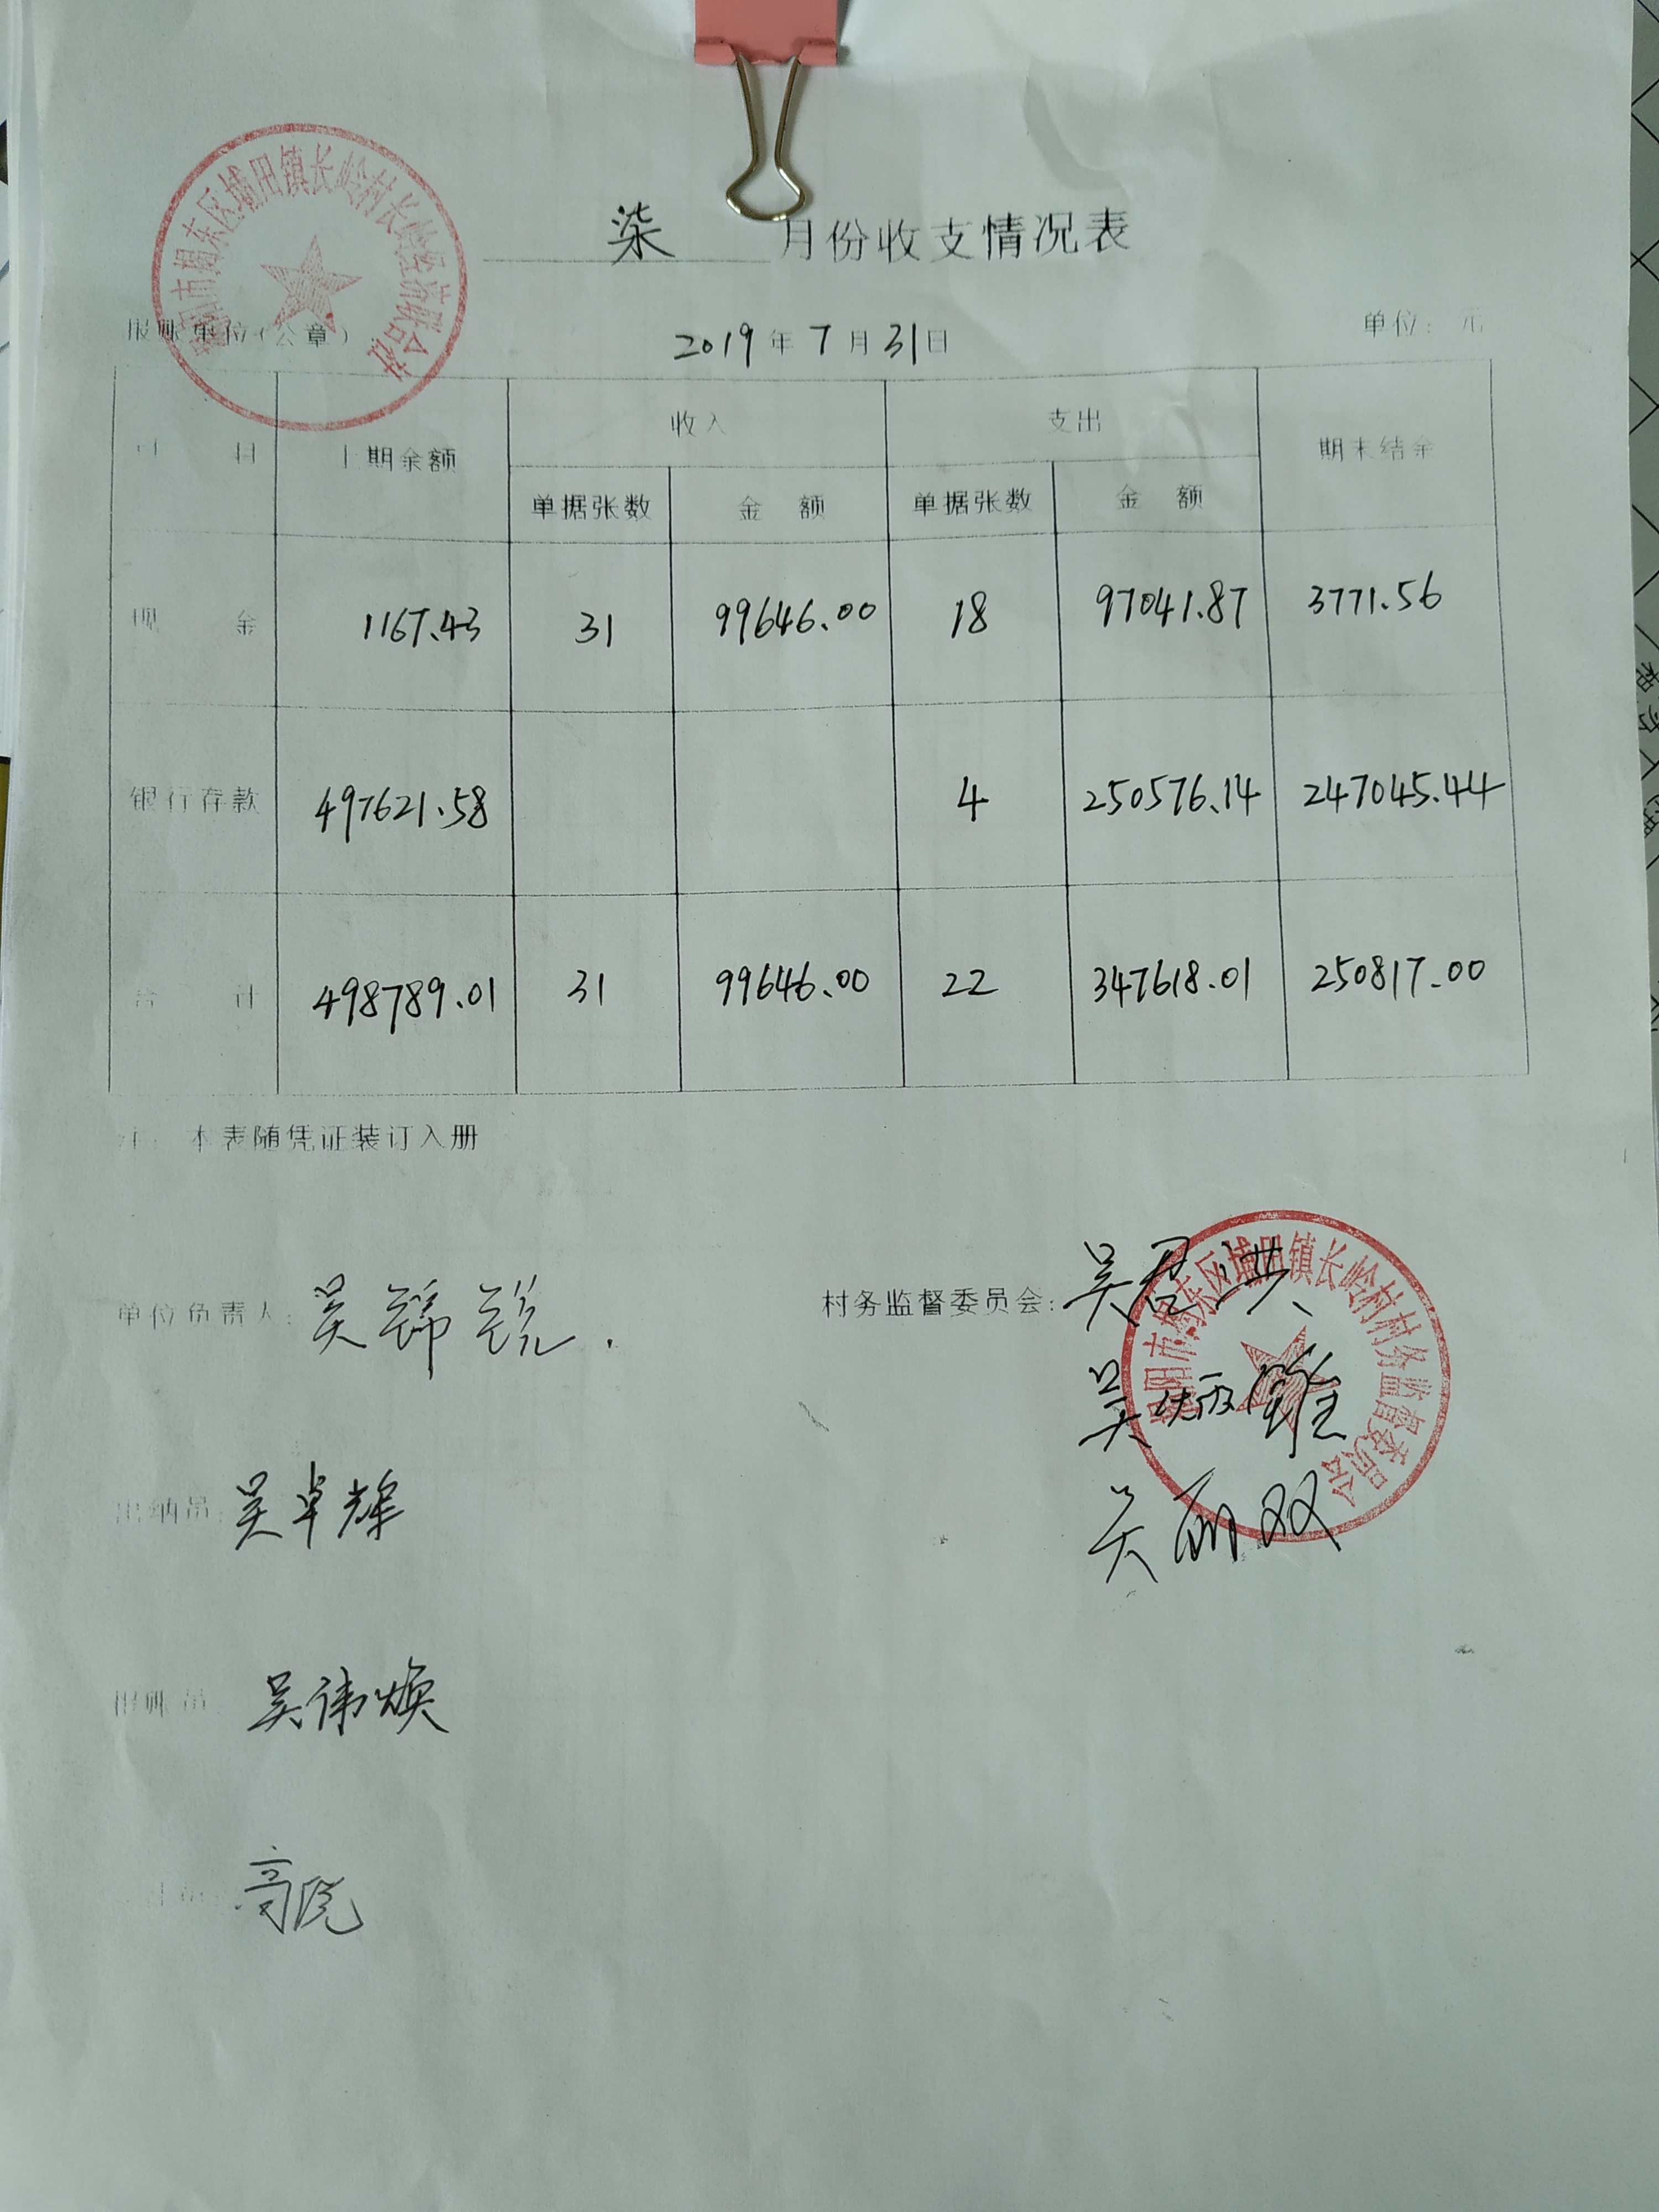 柒 月份收支情况表
揭阳市揭东区埔田镇长岭村长岭经济联合社
报账单位(公章) 2019年7月31日 单位：元
科目 上期余额 收入 支出 期末结余
单据张数 金额 单据张数 金额
现金 1167.43 31 99646.00 18 97041.87 3771.56
银行存款 497621.58 4 250576.14 247045.44
合计 498789.01 31 99646.00 22 347618.01 250817.00
注：本表随凭证装订入册
单位负责人：吴锦锐. 村务监督委员会：吴君洪
揭阳市揭东区埔田镇长岭村村务监督委员会
吴炳雄
出纳员：吴卓辉 吴丽双
报账员：吴伟焕